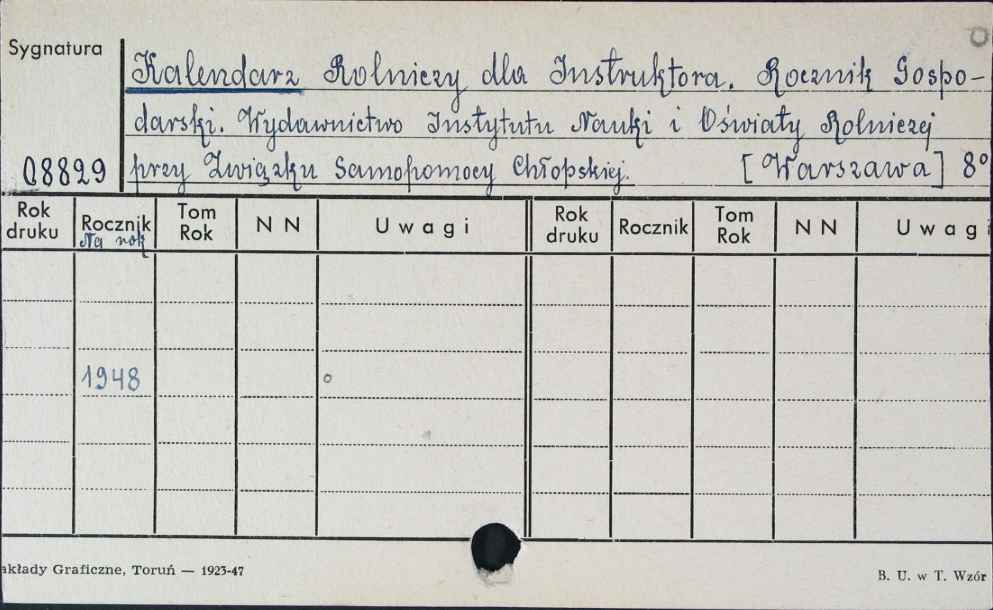 Sygnatura
Kalendarz Rolniczy dla Instruktora. Rocznik Gospo-
darski. Wydawnictwo Instytutu Nauki i Oświaty Rolniczej
08829 przy Związku Samopomocy Chłopskiej. [Warszawa] 8°
Rok druku Rocznik Tom Rok N N Uwagi Rok druku Rocznik Tom Rok N N Uwagi
Na rok
1948
akłady Graficzne, Toruń — 1923-47 B. U. w T. Wzór